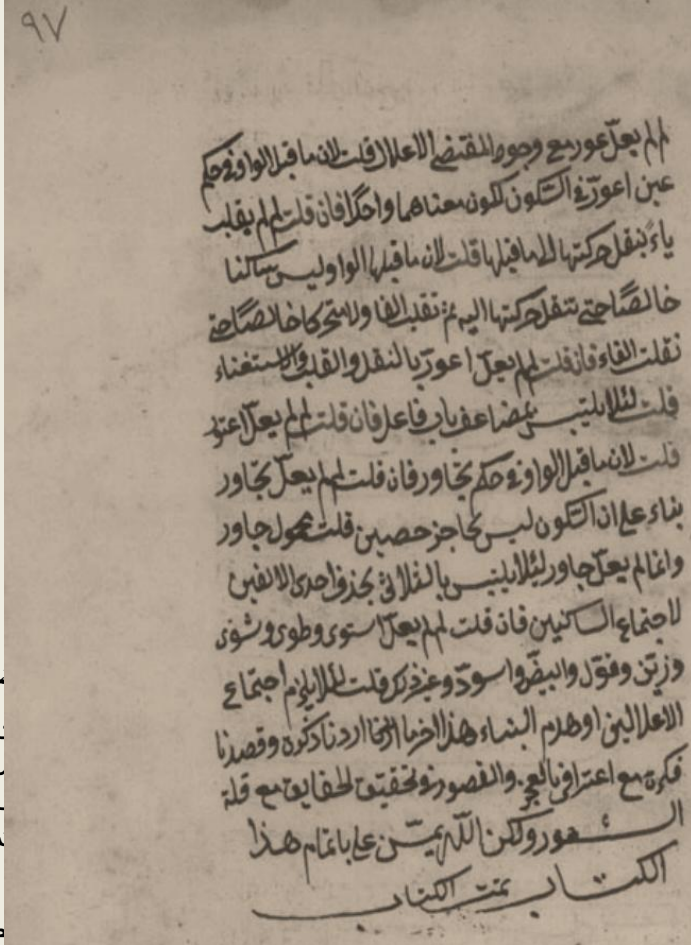 ٩٧
لم لم يعلّ عور مع وجود المقتضى الاعلال قلت لان ما قبل الواو في حكم
عين اعورّ في السّكون لكون معناهما واحدًا فان قلت لم لم يقلب
ياءً بنقل حركتها الى ما قبلها قلت لان ما قبلها الواو ليس ساكنا
خالصًا حتى تنقل حركتها اليه ثم تقلب الفا ولا متحركا خالصًا حتى
نقلت الفاء فان قلت لم لم يعلّ اعورّ بالنقل والقلب والاستغناء
قلت لئلا يلتبس بمضاعف باب فاعل فان قلت لم لم يعلّ اعتور
قلت لان ما قبل الواو في حكم تجاور فان قلت لم لم يعلّ تجاور
بناء على ان السّكون ليس بحاجز حصين قلت محمول جاور
وانما لم يعلّ جاور لئلا يلتبس بالثلاثي بحذف احدى الالفين
لاجتماع الساكنين فان قلت لم لم يعلّ استوى وطوى وشوى
وزيّن وقوّل وابيضّ واسودّ وغير ذلك قلت لئلا يلزم اجتماع
الاعلالين او هدم البناء هذا اخر ما اردنا ذكره وقصدنا
فكره مع اعترافي بالعجز والقصور في تحقيق الحقايق مع قلة
الشعور ولكن اللّه يمنّ على باتمام هذا
الكتاب تمت الكتاب